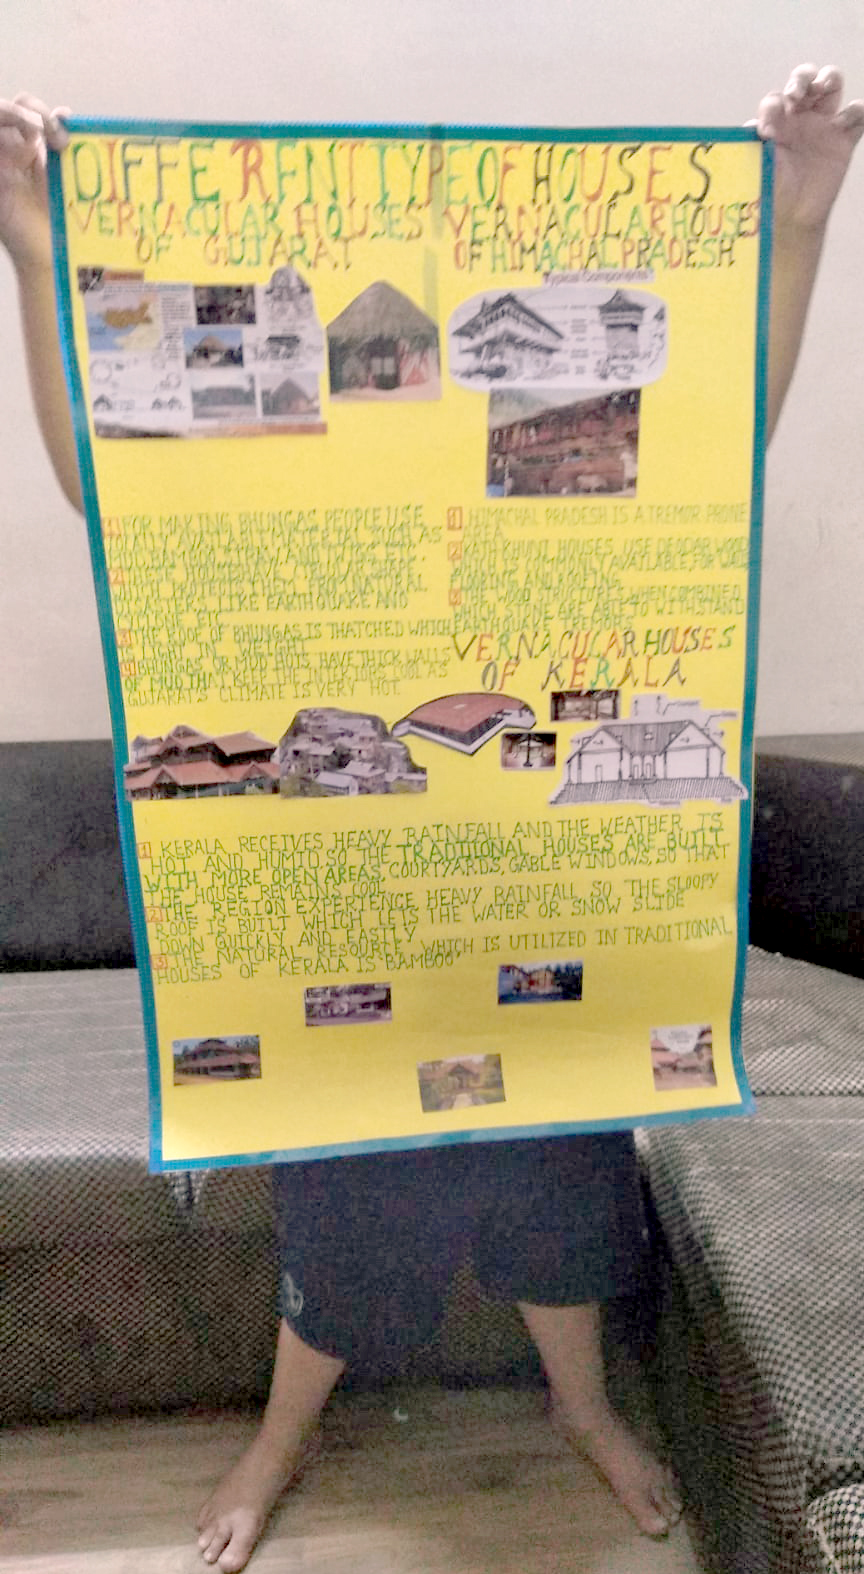 DIFFERENT TYPE OF HOUSES
VERNACULAR HOUSES
OF GUJARAT
VERNACULAR HOUSES
OF HIMACHAL PRADESH
Typical Components
1 FOR MAKING BHUNGAS, PEOPLE USE
LOCALLY AVAILABLE MATERIAL SUCH AS
MUD, BAMBOO, STRAW, AND TWIGS ETC.
2 THESE HOUSE HAVE CIRCULAR SHAPE
WHICH PROTECTS THEM FROM NATURAL
DISASTERS LIKE EARTHQUAKE AND
CYCLONE ETC
3 THE ROOF OF BHUNGAS IS THATCHED WHICH
IS LIGHT IN WEIGHT
4 BHUNGAS OR MUD HUTS HAVE THICK WALLS
OF MUD THAT KEEP THE INTERIORS COOL AS
GUJARAT'S CLIMATE IS VERY HOT.
1 HIMACHAL PRADESH IS A TREMOR PRONE
AREA
2 KATH KHUNI HOUSES USE DEODAR WOOD
WHICH IS COMMONLY AVAILABLE, FOR WALL
FLOORING AND ROOFING
3 THE WOOD STRUCTURES WHEN COMBINED
WHICH STONE ARE ABLE TO WITHSTAND
EARTHQUAKE TREMORS
VERNACULAR HOUSES
OF KERALA
1 KERALA RECEIVES HEAVY RAINFALL AND THE WEATHER IS
HOT AND HUMID SO THE TRADITIONAL HOUSES ARE BUILT
WITH MORE OPEN AREAS, COURTYARDS, GABLE WINDOWS, SO THAT
THE HOUSE REMAINS COOL
2 THE REGION EXPERIENCE HEAVY RAINFALL SO THE SLOOPY
ROOF IS BUILT WHICH LETS THE WATER OR SNOW SLIDE
DOWN QUICKLY AND EASILY
3 THE NATURAL RESOURCE, WHICH IS UTILIZED IN TRADITIONAL
HOUSES OF KERALA IS BAMBOO